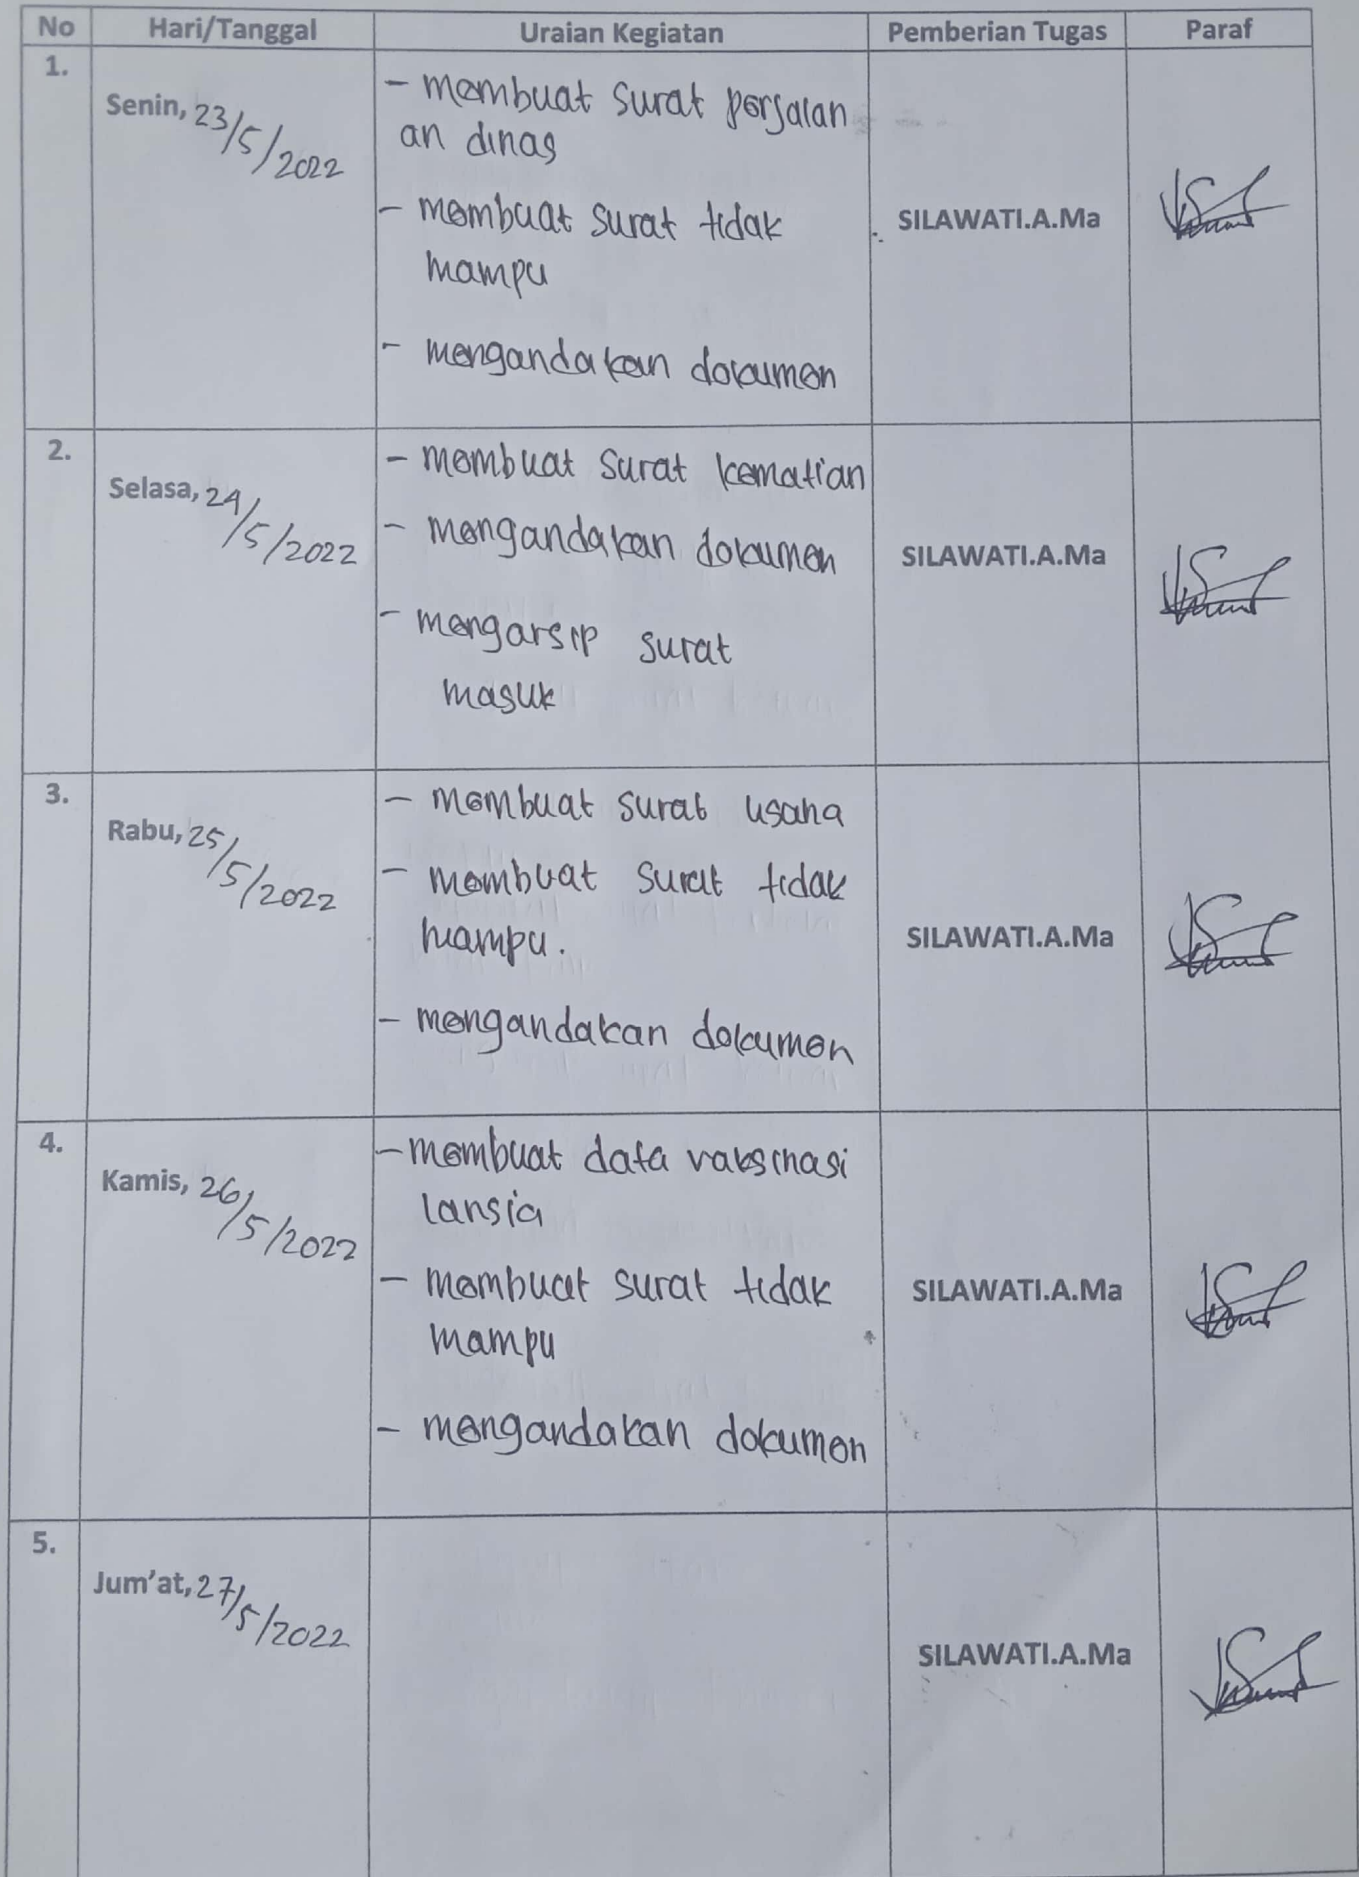 No Hari/Tanggal Uraian Kegiatan Pemberian Tugas Paraf
1.
Senin, 23/5/2022
- membuat surat perjalan
an dinas
- membuat surat tidak
mampu
- mengandakan dokumen
SILAWATI.A.Ma
2.
Selasa, 24/5/2022
- membuat surat kematian
- mengandakan dokumen
- mengarsip surat
masuk
SILAWATI.A.Ma
3.
Rabu, 25/5/2022
- membuat surat usaha
- membuat surat tidak
mampu.
- mengandakan dokumen
SILAWATI.A.Ma
4.
Kamis, 26/5/2022
- membuat data vaksinasi
lansia
- membuat surat tidak
mampu
- mengandakan dokumen
SILAWATI.A.Ma
5.
Jum'at, 27/5/2022
SILAWATI.A.Ma